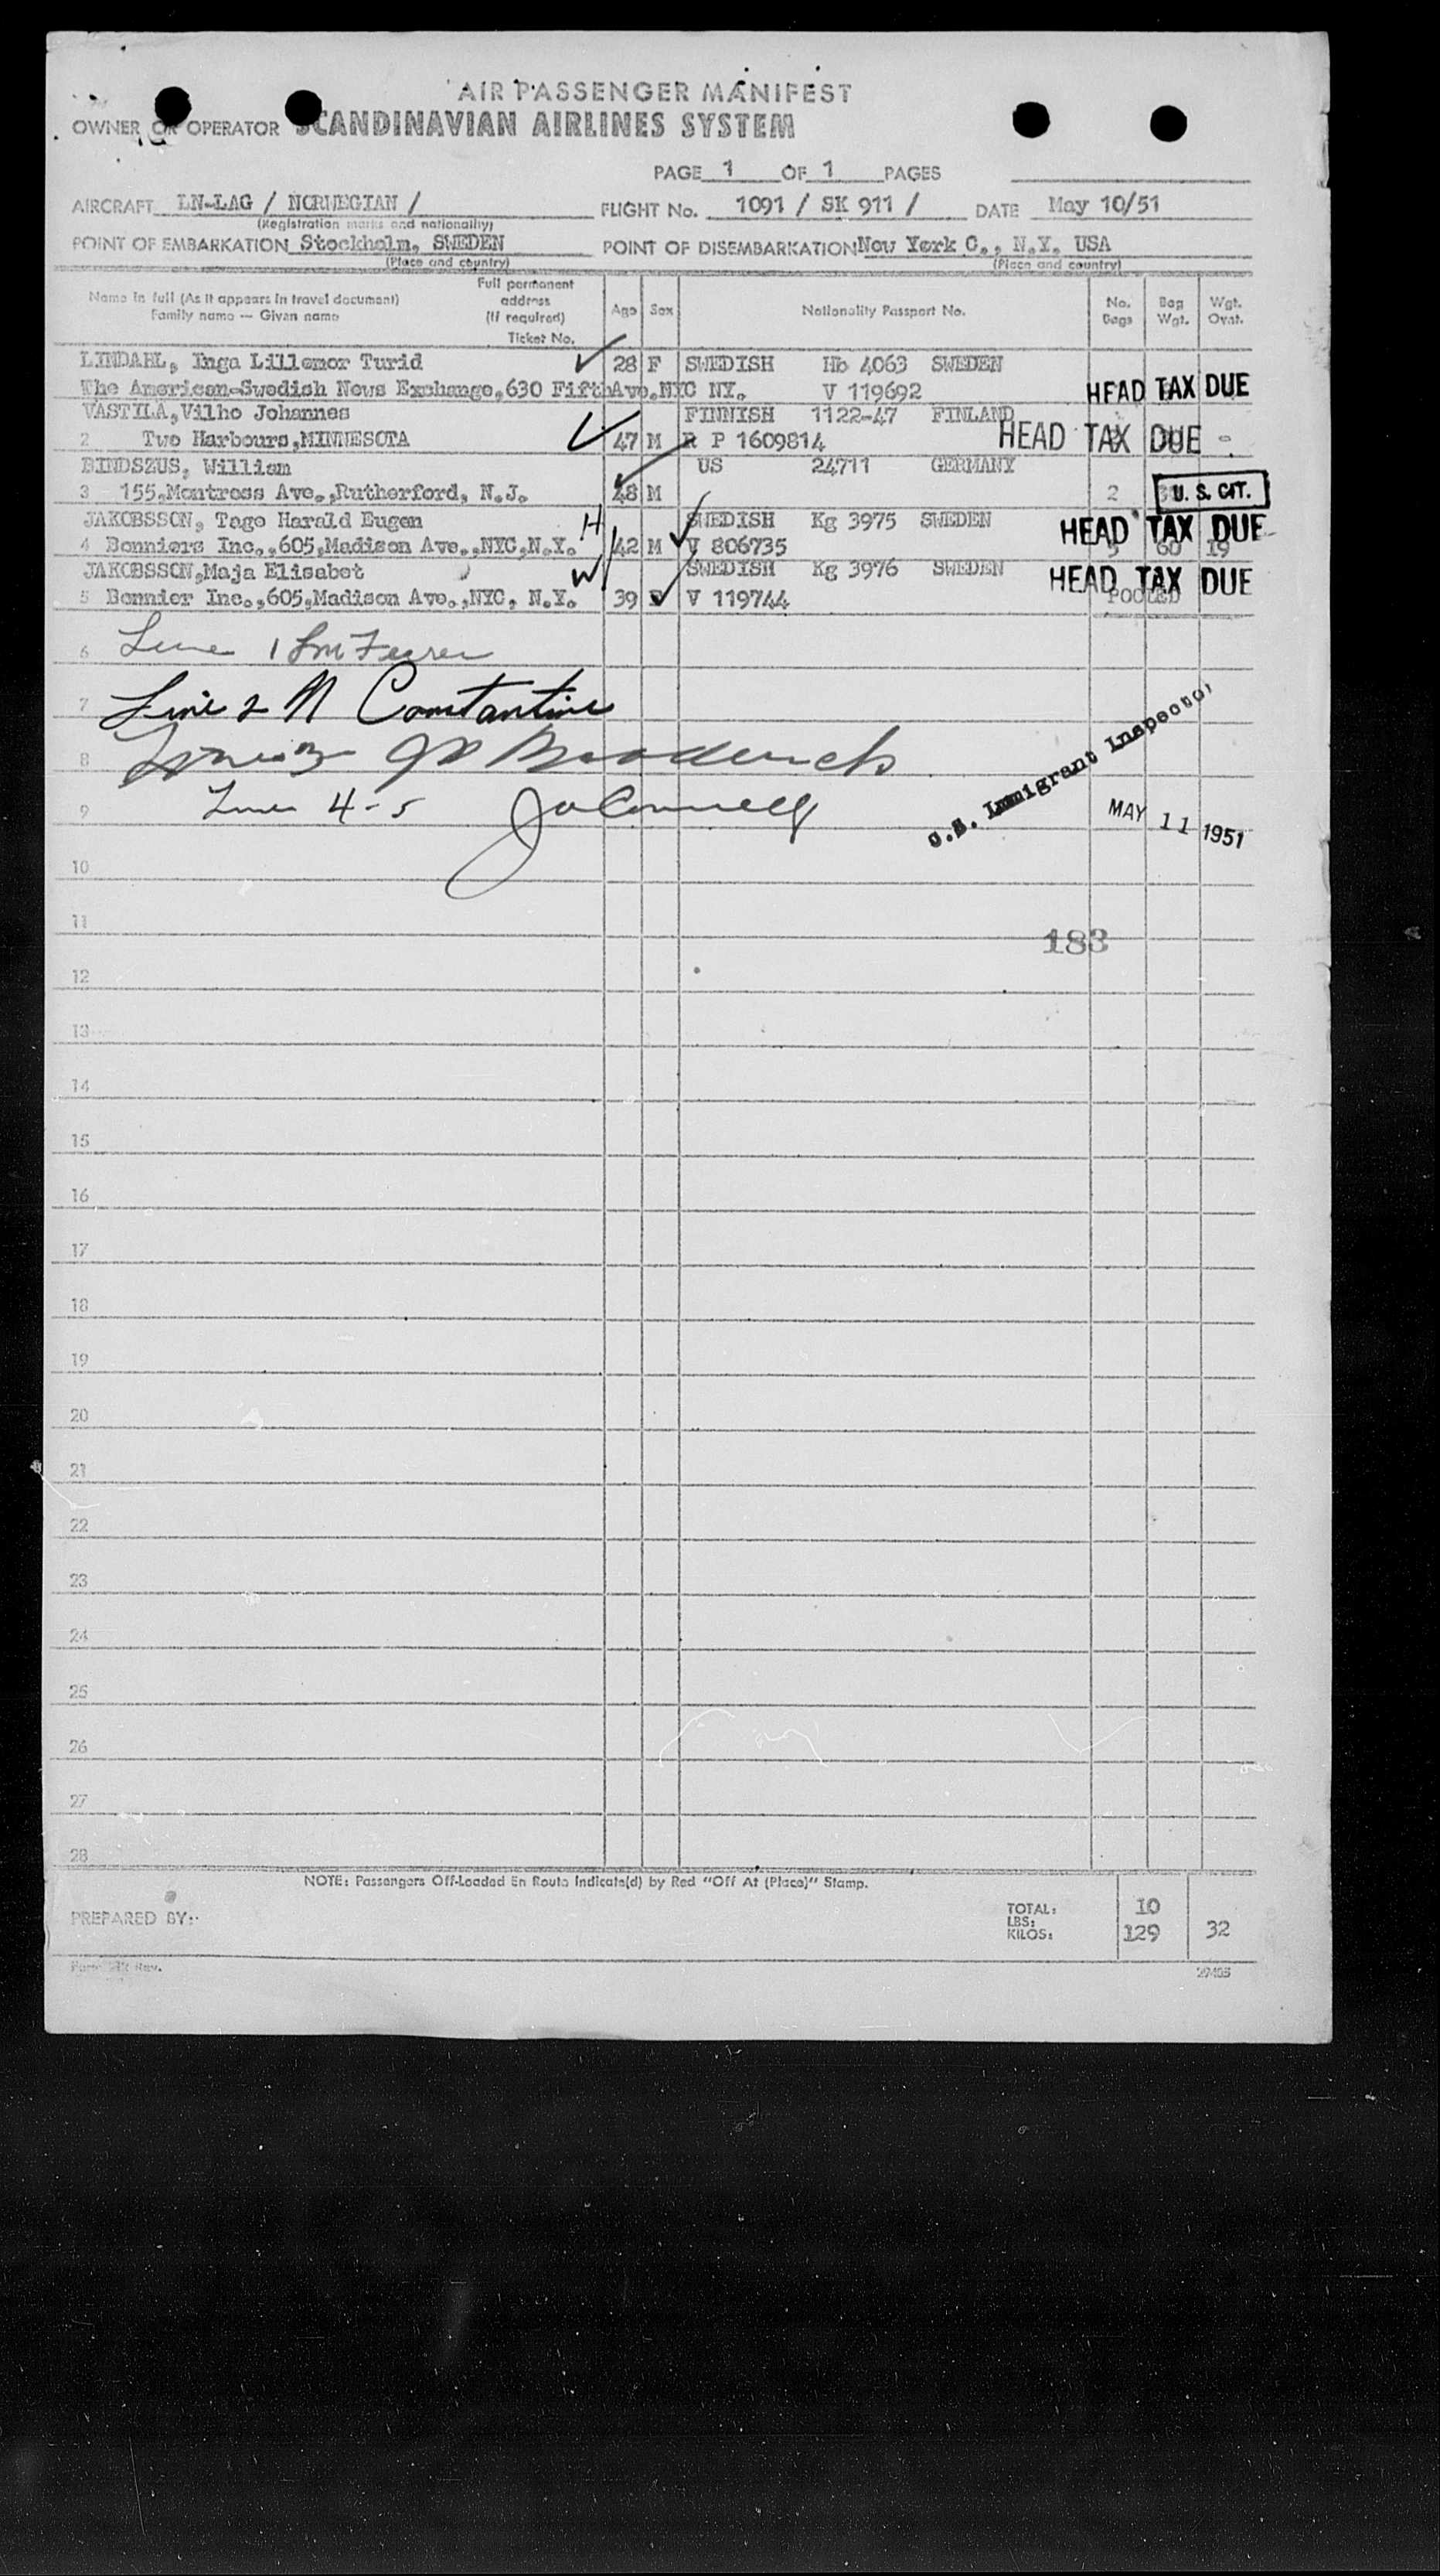 AIR PASSENGER MANIFEST
OWNER OR OPERATOR SCANDINAVIAN AIRLINES SYSTEM
PAGE 1 OF 1 PAGES
AIRCRAFT LN-LAG / NORWEGIAN / FLIGHT No. 1091 / SK 911 / DATE May 10/51
(Registration marks and nationality)
POINT OF EMBARKATION Stockholm, SWEDEN POINT OF DISEMBARKATION New York C., N.Y. USA
(Place and country) (Place and country)
Name in full (As it appears in travel document) Family name — Given name Full permanent address (If required) Ticket No. Age Sex Nationality Passport No. No. Bags Bag Wgt. Wgt. Ovnt.
LINDAHL, Inga Lillemor Turid 28 F SWEDISH Hb 4063 SWEDEN
The American-Swedish News Exchange, 630 Fifth Ave. NYC NY. V 119692 HEAD TAX DUE
VASTILA, Vilho Johannes FINNISH 1122-47 FINLAND
2 Two Harbours, MINNESOTA 47 M R P 1609814 HEAD TAX DUE -
BINDSZUS, William US 24711 GERMANY
3 155, Montross Ave., Rutherford, N.J. 48 M 2 U. S. CIT.
JAKOBSSON, Tage Harald Eugen H SWEDISH Kg 3975 SWEDEN HEAD TAX DUE
4 Bonniers Inc., 605, Madison Ave., NYC, N.Y. 42 M V 806735 5 60 19
JAKOBSSON, Maja Elisabet W SWEDISH Kg 3976 SWEDEN HEAD TAX DUE
5 Bonnier Inc., 605, Madison Ave., NYC, N.Y. 39 F V 119744 POOLED
6 Line 1
7 Line 2 N Constantine
8
9 Line 4-5 J O'Connell
U.S. Immigrant Inspector
MAY 11 1951
10
11
183
12
13
14
15
16
17
18
19
20
21
22
23
24
25
26
27
28
NOTE: Passengers Off-Loaded En Route Indicate(d) by Red "Off At (Place)" Stamp.
PREPARED BY:
TOTAL: 10
LBS:
KILOS: 129 32
Rev.